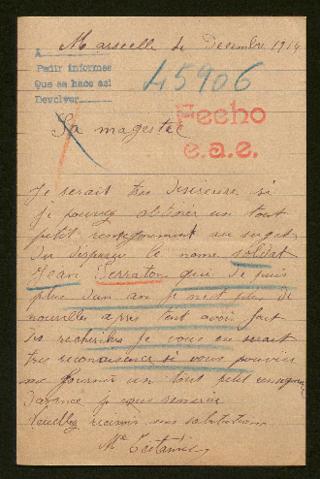 Marseille le Decembre 1914
A
Pedir informes
Que se hace asi
Devolver
45906
Fecho
e.a.e.
Sa magestée
Je serait tres desireuse si
je pouvez obtenir un tout
petit renseignement au suget
du disparue le nomé soldat
Jean Serraton qui depuis
plus dun an je n'est plus de
nouvelles apres tout avoir fait
des recherches je vous en serait
tres reconaisence si vous pouviez
me fournir un tout petit
Davance je vous remercie
Veuillez recevoir mes salutations
Me